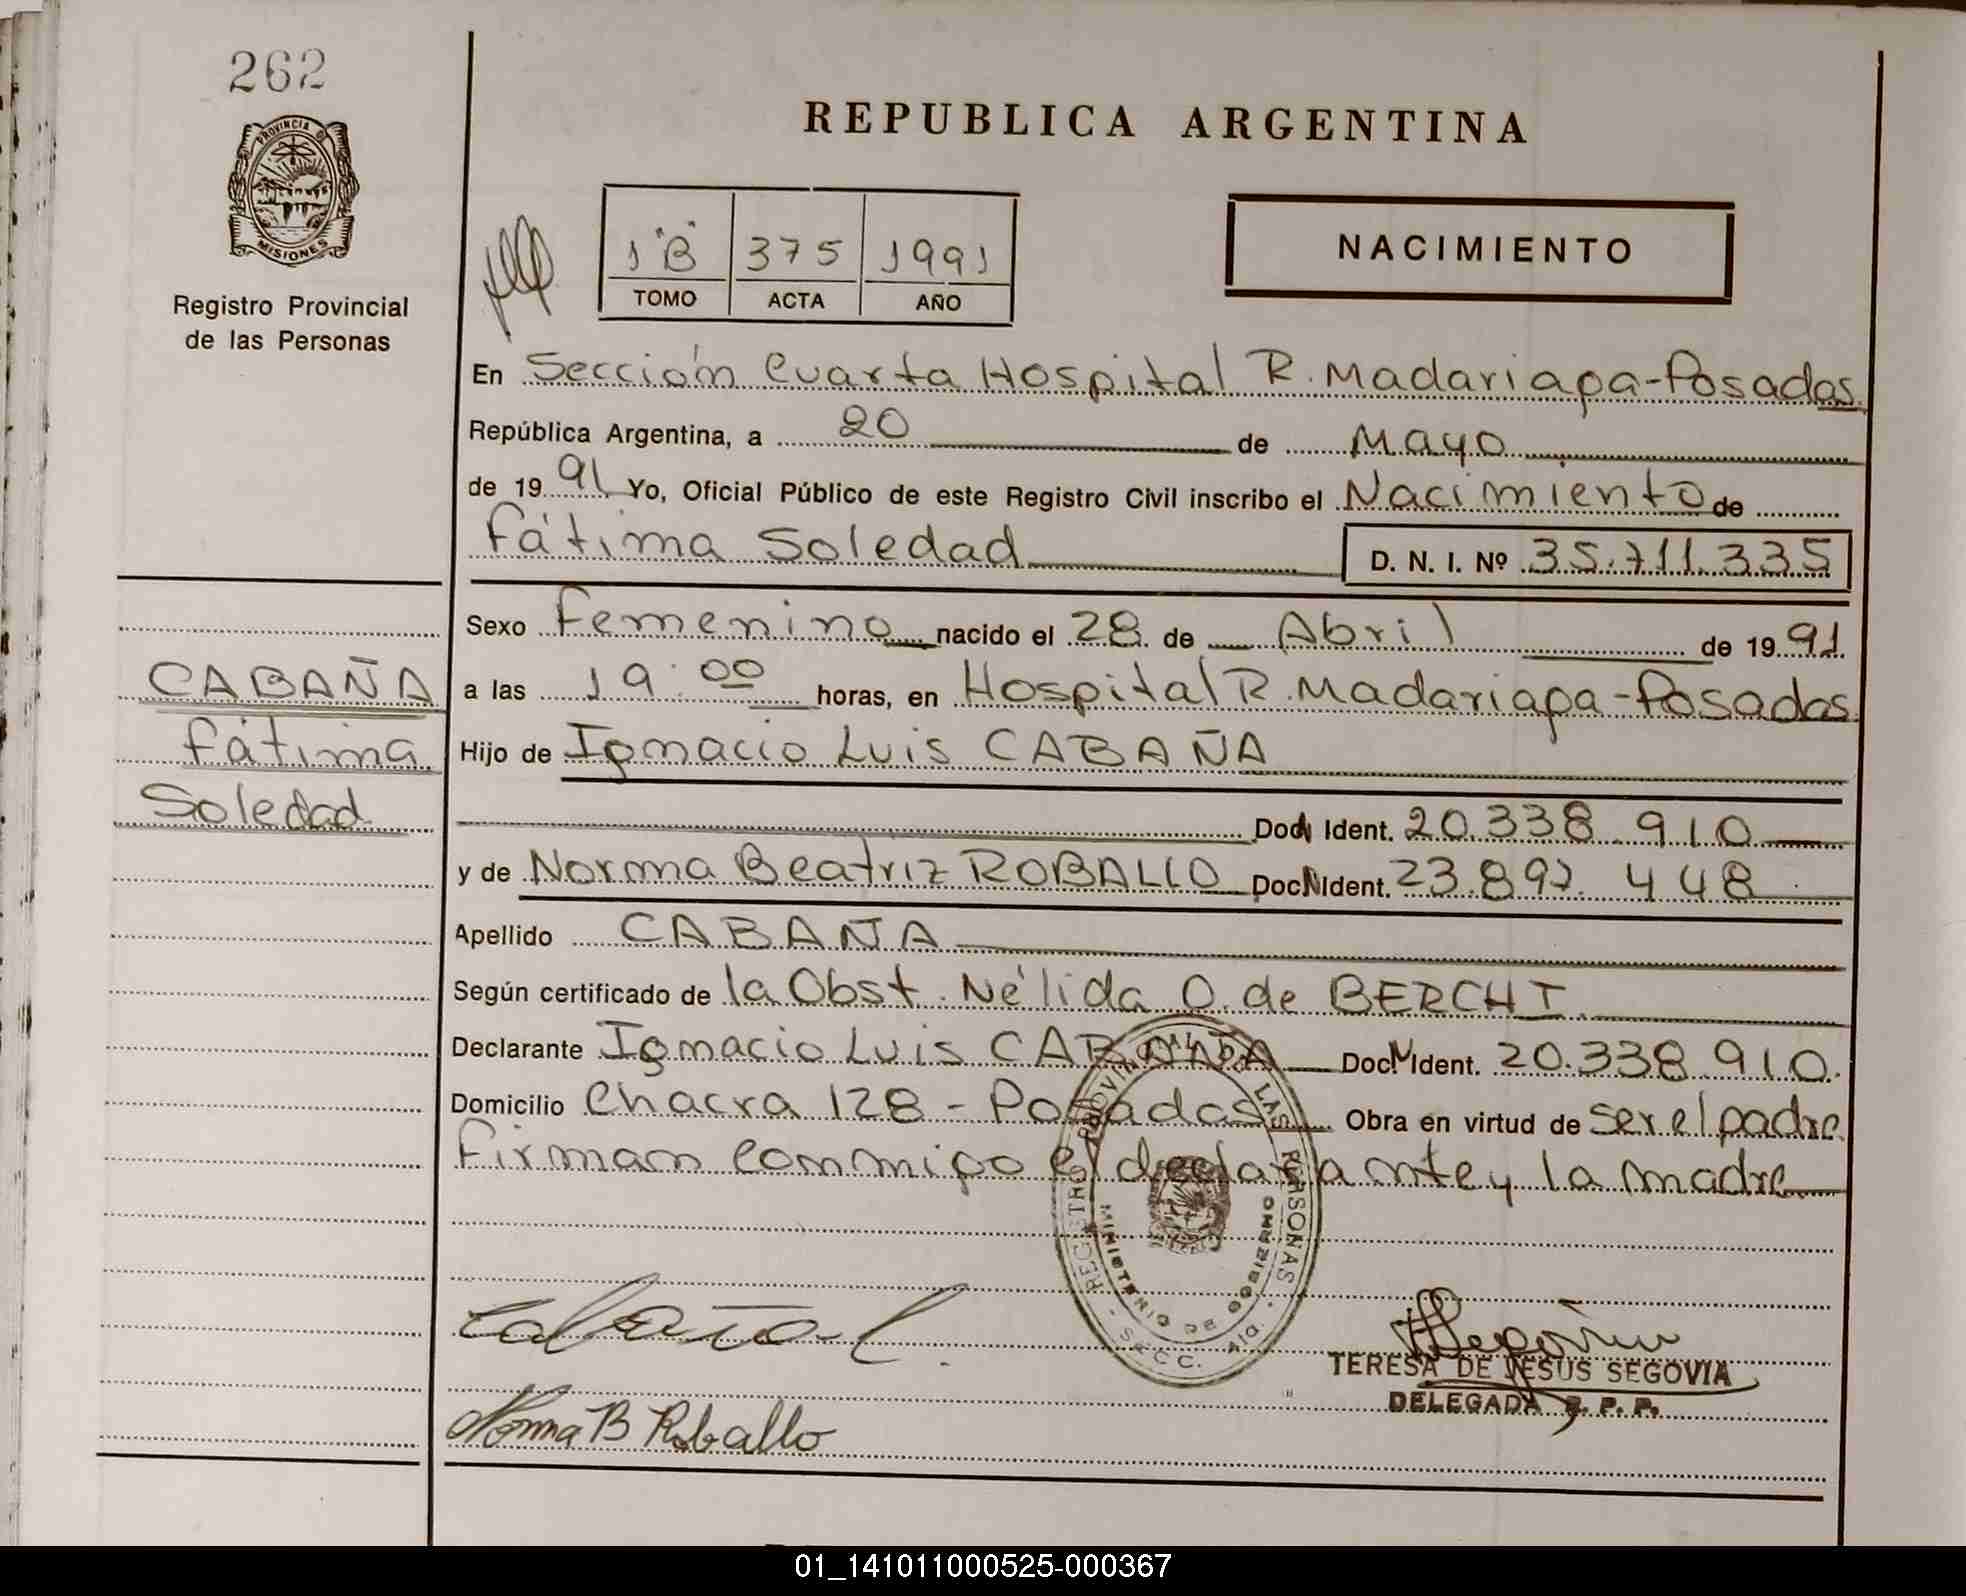 262
PROVINCIA D
MISIONES
Registro Provincial
de las Personas
REPUBLICA ARGENTINA
1 "B" 375 1991
TOMO ACTA AÑO
NACIMIENTO
En Sección Cuarta Hospital R. Madariaga-Posadas.
República Argentina, a 20 de Mayo
de 1991 Yo, Oficial Público de este Registro Civil inscribo el Nacimiento de
Fátima Soledad D. N. I. Nº 35.711.335
Sexo Femenino nacido el 28 de Abril de 1991
a las 19:00 horas, en Hospital R. Madariaga-Posadas.
Hijo de Ignacio Luis CABAÑA
Doc. Ident. 20.338.910
y de Norma Beatriz ROBALLO Doc. Ident. 23.897.448
Apellido CABAÑA
Según certificado de la Obst. Nélida O. de BERCHI.
Declarante Ignacio Luis CABAÑA Doc. Ident. 20.338.910.
Domicilio Chacra 128 - Posadas Obra en virtud de ser el padre
Firman conmigo el declarante y la madre
CABAÑA
Fátima
Soledad
REGISTRO PROVINCIAL DE LAS PERSONAS
MINISTERIO DE GOBIERNO
SECC. 4ta.
Cabaña L.
Norma B Roballo
Segovia
TERESA DE JESUS SEGOVIA
DELEGADA R. P. P.
01_141011000525-000367